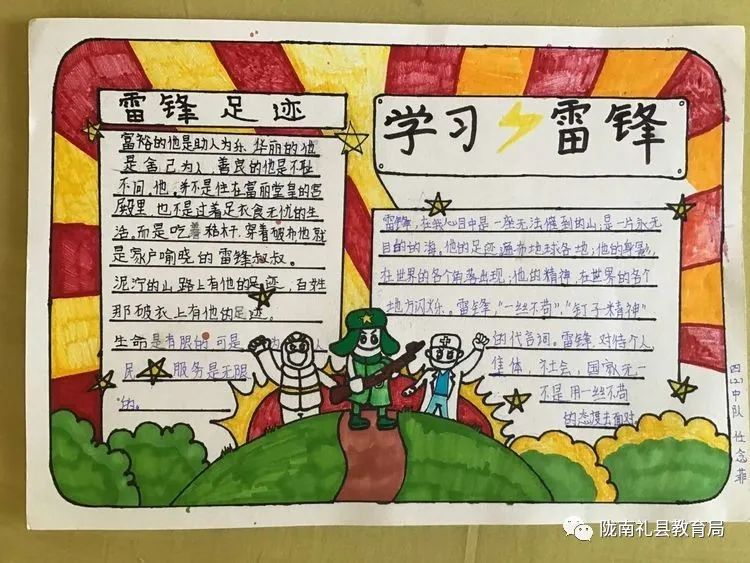 雷锋足迹
富裕的他是助人为乐.华丽的他
是舍己为人,善良的他是不耻
不问.他.并不是住在富丽堂皇的宫
殿里.也不是过着足衣食无忧的生
活.而是吃着粘干,穿着破布他就
是家户喻晓的雷锋叔叔。
泥泞的山路上有他的足迹,百姓
那破衣上有他的足迹。
生命是有限的可是 为 人
民 服务是无限
的.
学习雷锋
雷锋,在我心目中是一座无法催到的山;是一片永无
目的的海,他的足迹遍布地球各地;他的身影,
在世界的各个角落出现;他的精神,在世界的各个
地方闪烁。雷锋,"一丝不苟","钉子米精神"
的代名词。雷锋对待个人
集体,社会,国家无一
不是用一丝不苟
的态度去面对
四(2)中队 任念菲
陇南礼县教育局